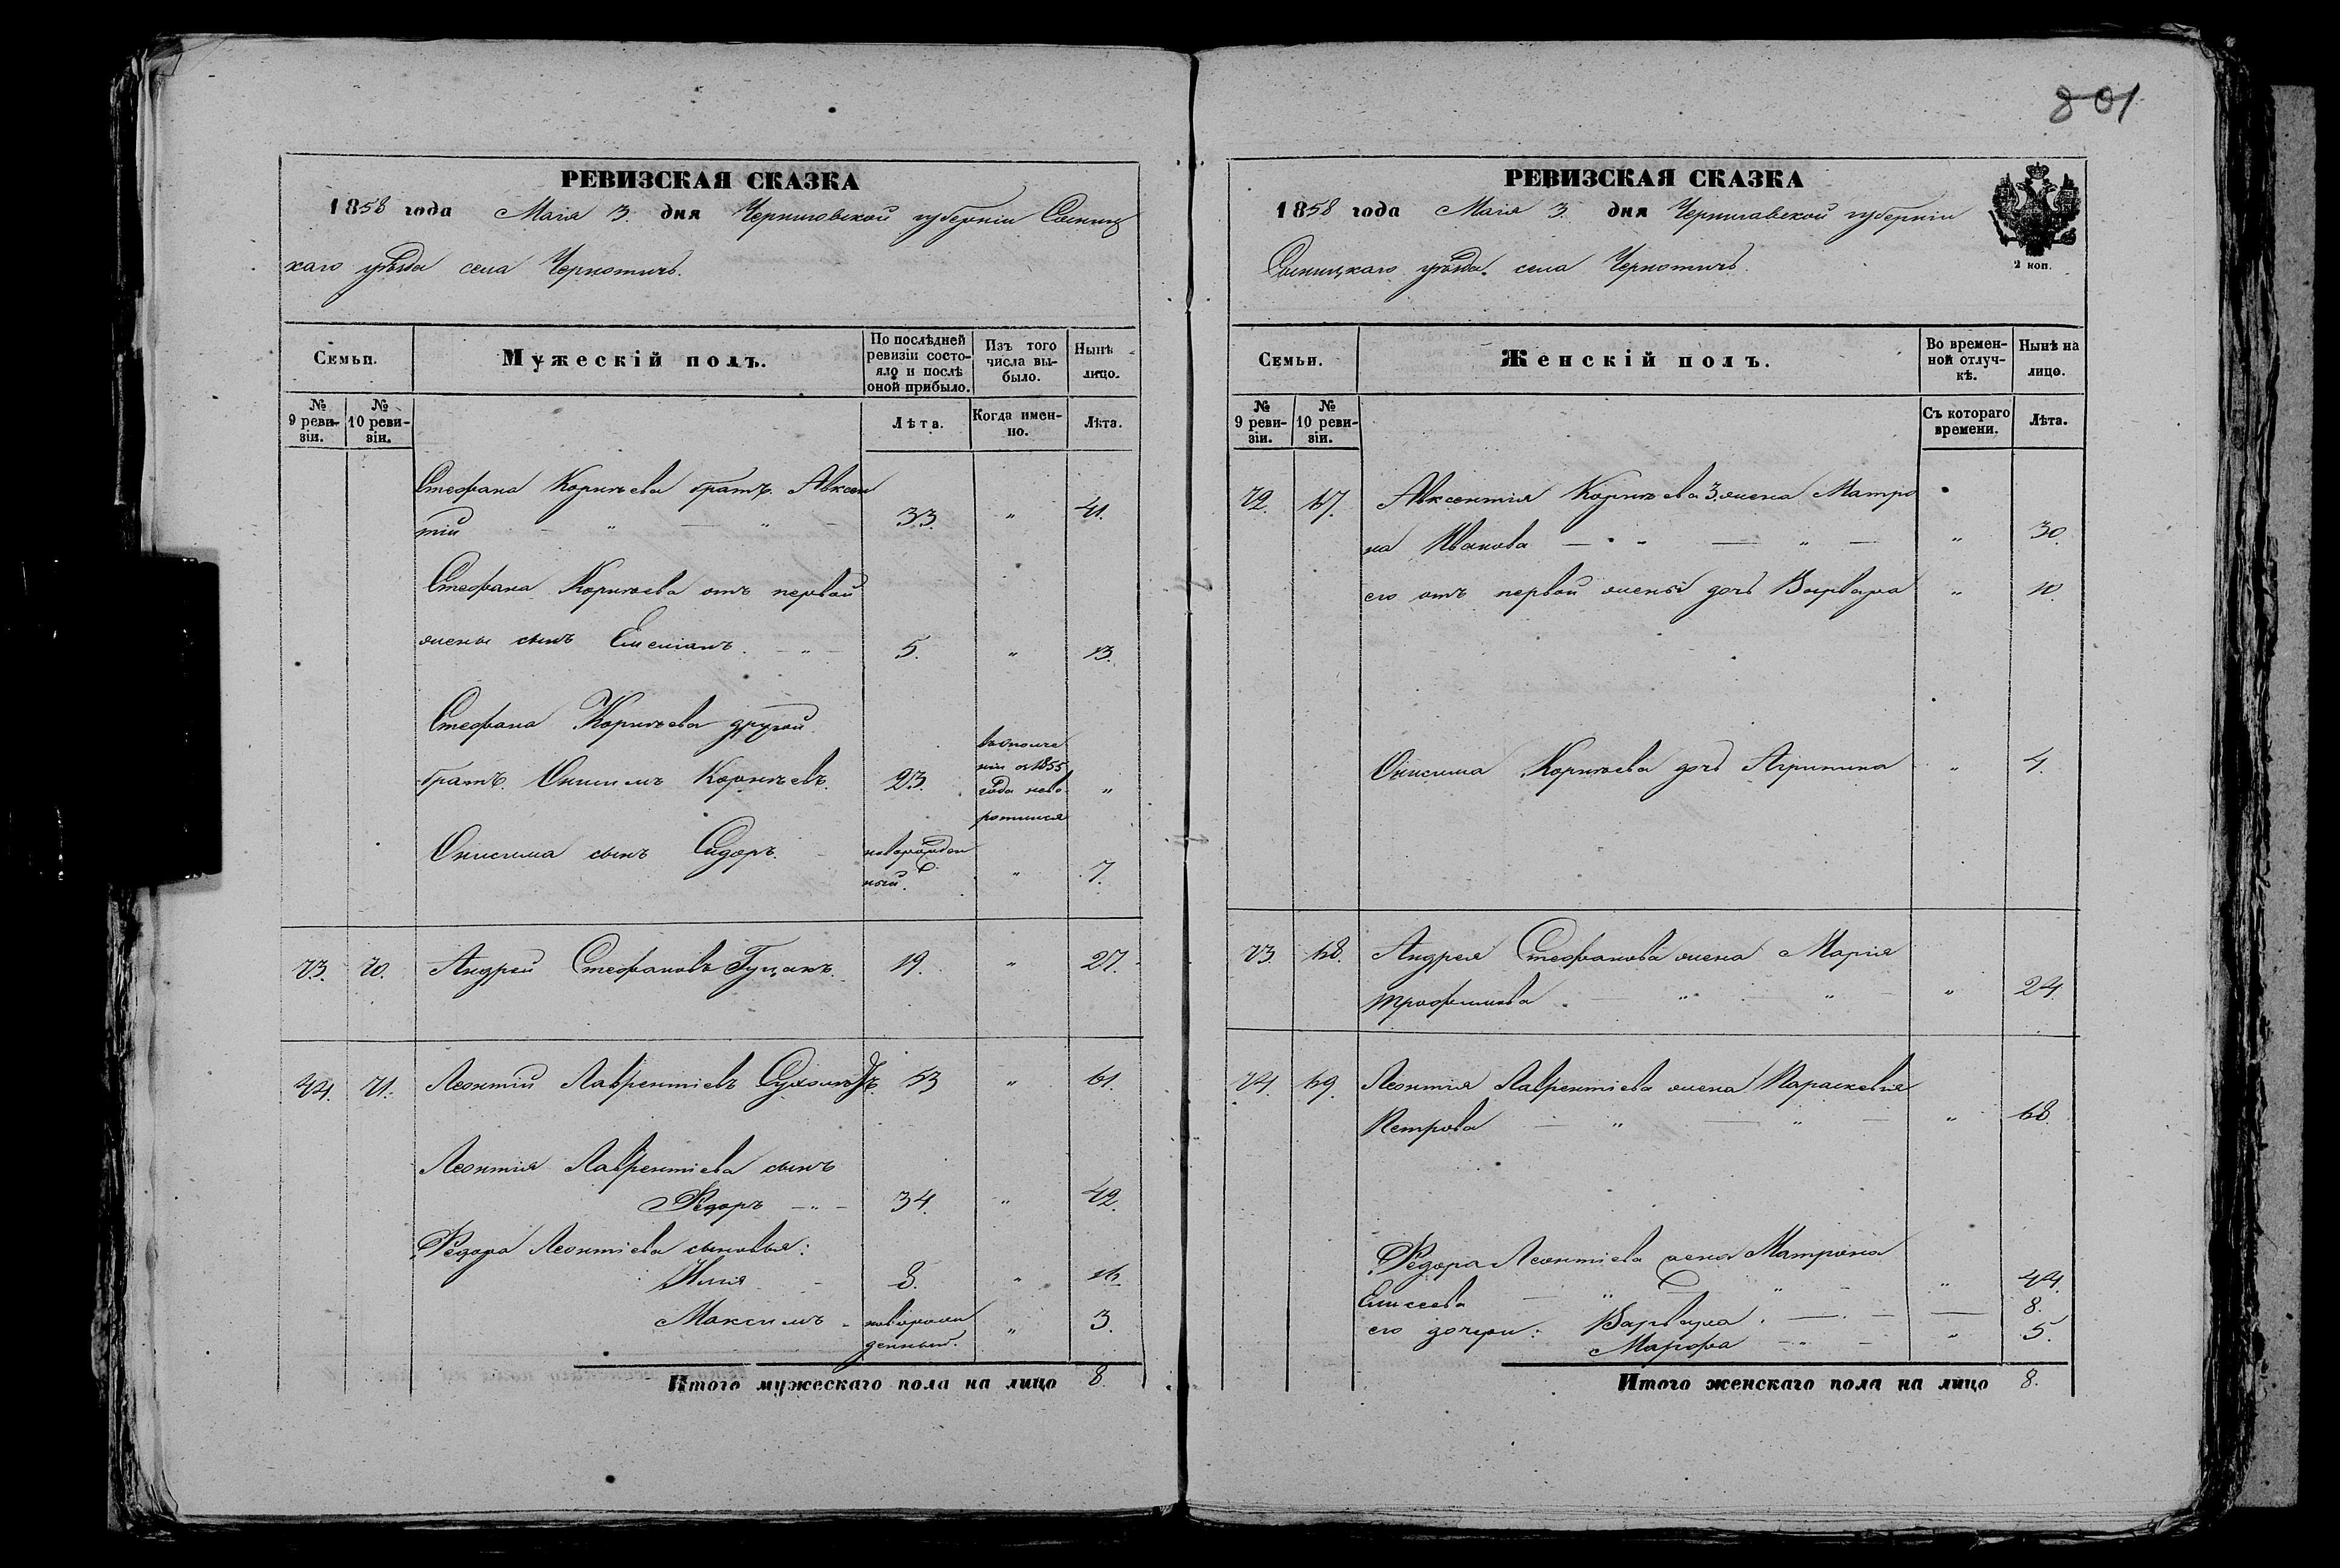 801
РЕВИЗСКАЯ СКАЗКА
1858 года Маія 3. дня Черниговской губерніи Сосниц
каго уѣзда села Чернотичъ.
Семьи.
Мужескій полъ.
По послѣдней ревизіи состояло и послѣ оной прибыло.
Изъ того числа выбыло.
Нынѣ на лицо.
№ 9 ревизіи.
№ 10 ревизіи.
Лѣта.
Когда именно.
Лѣта.
Стефана Корнѣева братъ Авксен
тій — " — " — 33. " 41.
Стефана Корнѣева отъ первой
жены сынъ Емеліанъ. — " — 5. " 13.
Стефана Корнѣева другой
братъ Онисимъ Корнѣевъ. 23. "
въ ополче
ніи съ 1855
года нево
ротился
Онисима сынъ Сидоръ. новорожден
ный. " 7.
73. 70. Андрей Стефановъ 19. " 27.
74. 71. Леонтій Лаврентіевъ 53 " 61.
Леонтія Лаврентіева сынъ
Федоръ — " — 34. " 42.
Федора Леонтіева сыновья:
Илія — 8. " 16.
Максимъ - новорож
денный. " 3.
Итого мужескаго пола на лицо 8.
РЕВИЗСКАЯ СКАЗКА
1858 года Маія 3. дня Черниговской губерніи
Сосницкаго уѣзда села Чернотичъ.
2 коп.
Семьи.
Женскій полъ.
Во временной отлучкѣ.
Нынѣ на лицо.
№ 9 ревизіи.
№ 10 ревизіи.
Съ котораго времени.
Лѣта.
72. 67. Авксентія Корнѣева 3. жена Матро
на Иванова — " — " — " 30.
его отъ первой жены дочь Варвара " 10.
Онисима Корнѣева дочь Агрипина " 4.
73. 68. Андрея Стефанова жена Марія
Трофимова. — " — " — " 24.
74. 69. Леонтія Лаврентіева жена Параскевія
Петрова — " — " — " 68.
Федора Леонтіева жена Матрона
Елисеева — " — " — " 44.
его дочери: Варвара. — — 8.
Марфа — " — " 5.
Итого женскаго пола на лицо 8.